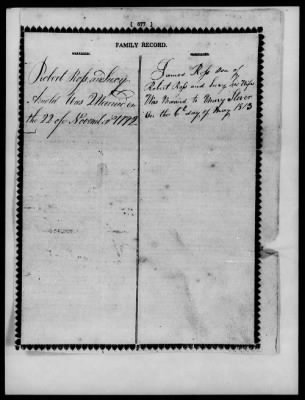 [ 677 ]
FAMILY RECORD.
MARRIAGES.
Robert Ross and Lucy
Arnold Was Married on
the 22 of November 1792
MARRIAGES.
James Ross Son of
Robert Ross and Lucy his Wife
Was Married to Mary
On the 6th day of May 1813